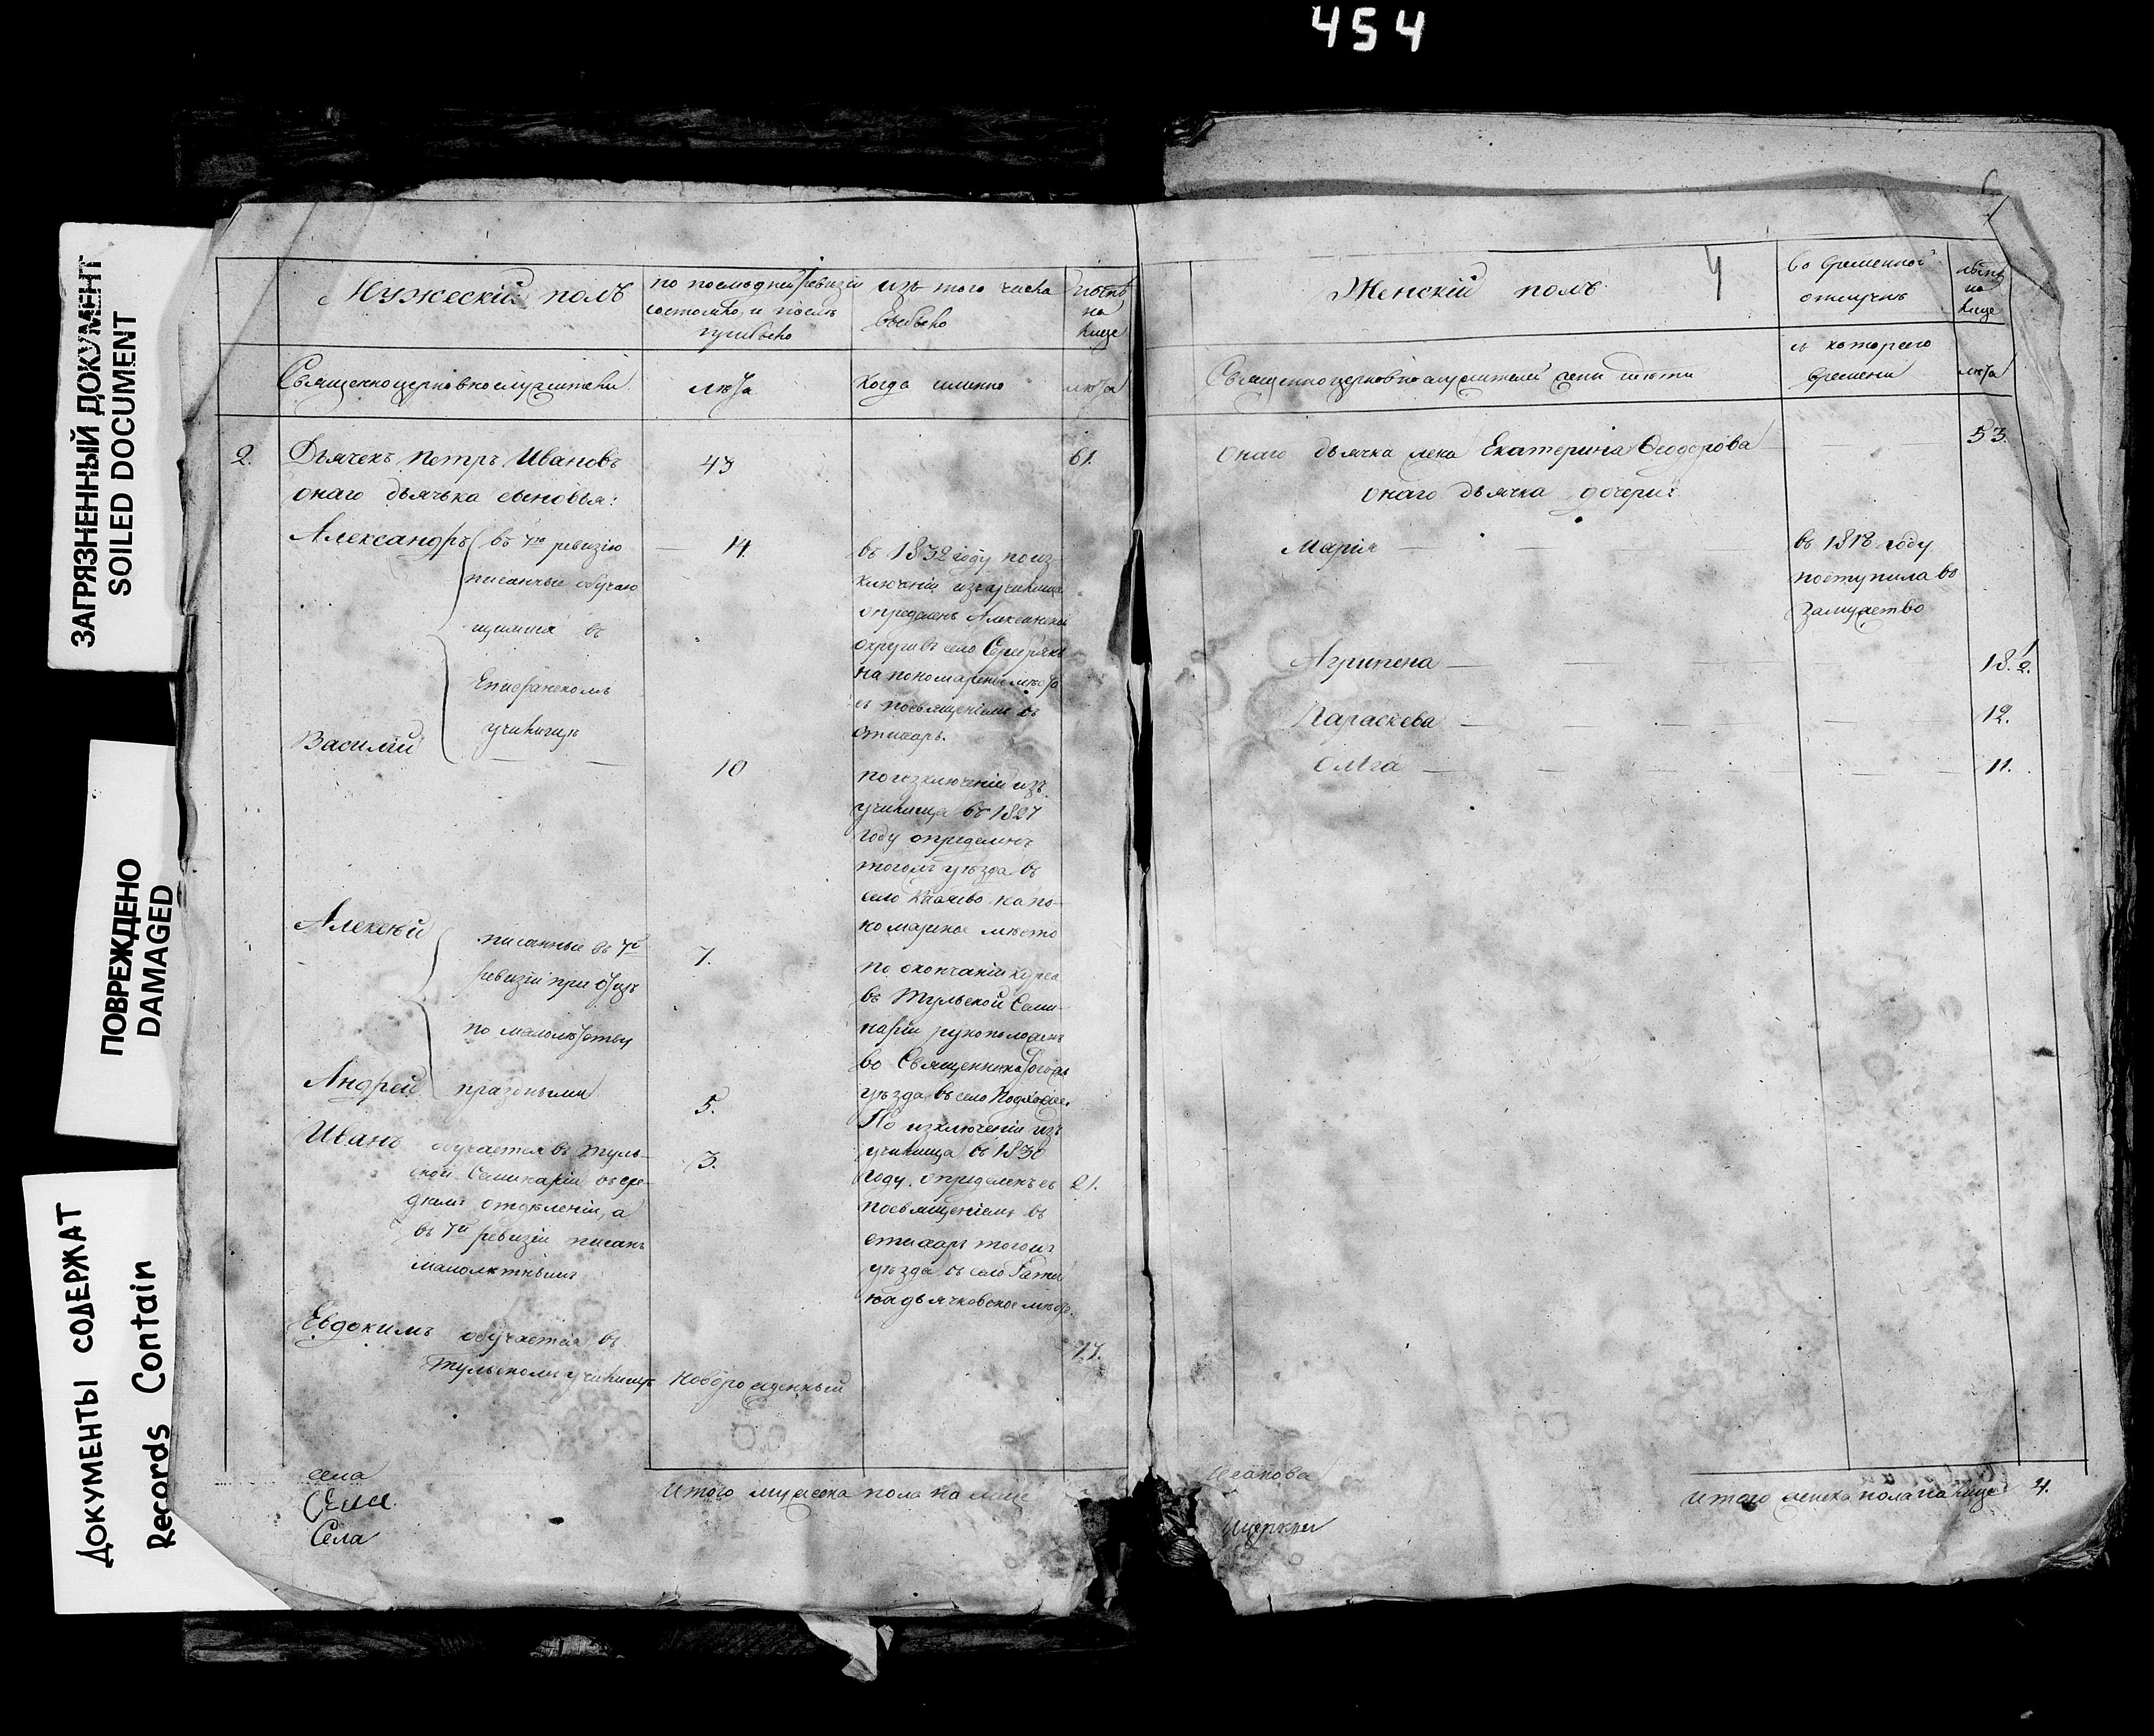 454
ЗАГРЯЗНЕННЫЙ ДОКУМЕНТ
SOILED DOCUMENT
ПОВРЕЖДЕНО
DAMAGED
ДОКУМЕНТЫ СОДЕРЖАТ
Records Contain
Мужескій полъ
по последней ревизіи
состояло, и после
прибыло
изъ того числа
выбыло
ныне
на
лице
Священноцерковнослужители
лѣта
когда именно
лѣта
2.
Дьячекъ Петръ Ивановъ
43
61.
онаго дьячька сыновья:
Александръ
въ 7ю ревизію
14.
писанные обучаю
щимися въ
Епифанскомъ
училищѣ
въ 1832 году по из
ключеніи изъ училища
определенъ Алексинской
округи въ село
на пономарское место
съ посвященіемъ въ
стихарь.
Василій
10
по изключеніи изъ
училища въ 1827
году определенъ
тогожъ уезда въ
село на по-
номарское место
Алексѣй
писанные въ 7й
ревизіи при отцѣ
по малолѣтству
праздными
7.
по окончаніи курса
въ Тульской Семи-
наріи рукоположенъ
во Священника тогожъ
уезда въ село
Андрей
5.
По изключеніи изъ
училища въ 1830
году определенъ съ
посвященіемъ въ
стихарь тогожъ
уезда въ село
на дьячковское место.
Иванъ обучается въ Туль-
ской Семинаріи въ сре-
днемъ отделеніи, а
въ 7й ревизіи писанъ
малолетнымъ
3.
21.
Евдокимъ обучается въ
Тульскомъ училищѣ
Новорожденный
17.
Итого мужеска пола на лице
села
Села
Женскій полъ
4
во временной
отлучкѣ
ныне
на
лице
Священноцерковнослужителей жены и дети
съ котораго
времени
лѣта
Онаго дьячка жена Екатерина Феодорова
53.
онаго дьячка дочери:
Марія
въ 1818 году
поступила въ
замужство
Агрипена
18.
Параскева
12.
Ольга
11.
Итого женска пола на лице 4.